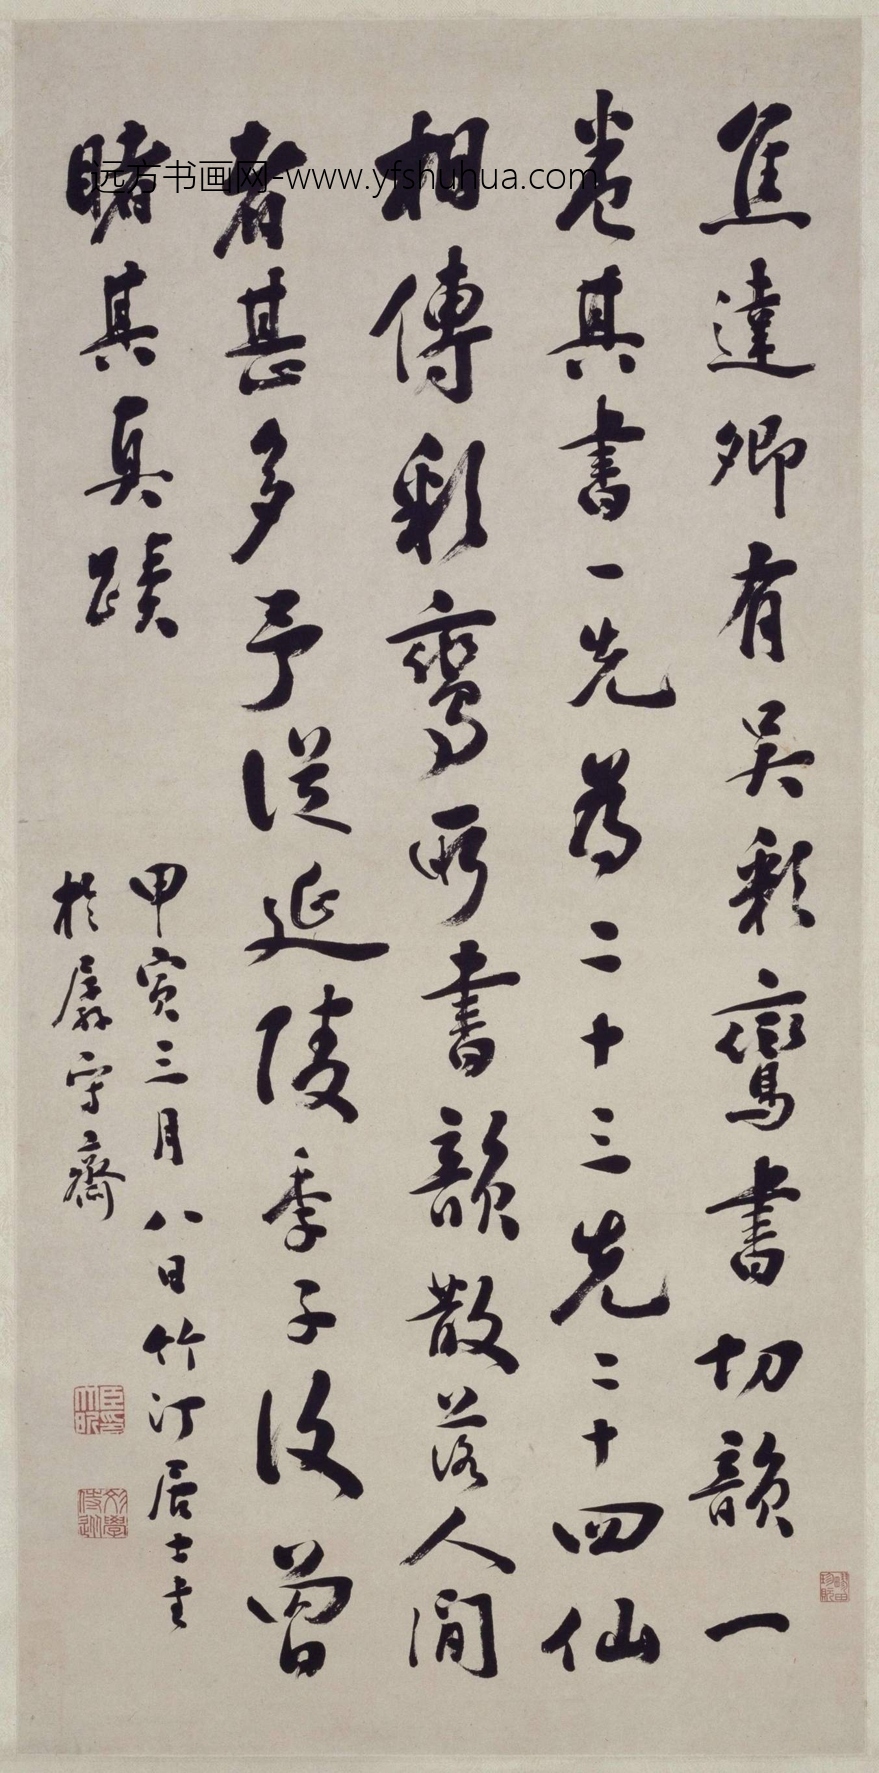 焦達卿有吳彩鸞書切韻一
卷其書一先為二十三先二十四仙
相傳彩鸞所書韻散落人間
者甚多予從延陵季子後曾
睹其真蹟
甲寅三月八日竹汀居士書
於孱守齋
远方书画网-www.yfshuhua.com